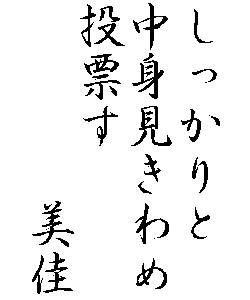 しっかりと
中身見きわめ
投票す
美佳